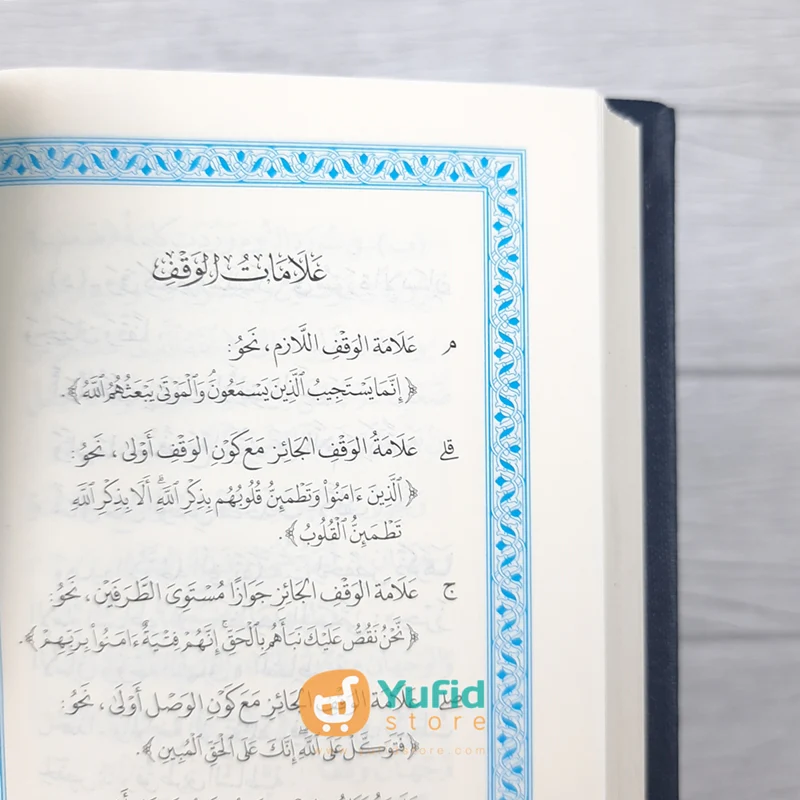 عَلَامَاتُ الوَقْفِ
م عَلَامَة الوَقْفِ اللَّازِم، نَحوُ:
﴿ إِنَّمَا يَسْتَجِيبُ ٱلَّذِينَ يَسْمَعُونَۘ وَٱلْمَوْتَىٰ يَبْعَثُهُمُ ٱللَّهُ ﴾.
ۗ عَلَامَةُ الوَقْفِ الجَائِز مَعَ كَوْنِ الوَقْفِ أَوْلَىٰ، نَحوُ:
﴿ ٱلَّذِينَ ءَامَنُوا۟ وَتَطْمَئِنُّ قُلُوبُهُم بِذِكْرِ ٱللَّهِۗ أَلَا بِذِكْرِ ٱللَّهِ
تَطْمَئِنُّ ٱلْقُلُوبُ ﴾.
ج عَلَامَة الوَقْفِ الجَائِز جَوَازًا مُسْتَوِيَ الطَّرَفَيْن، نَحوُ:
﴿ نَّحْنُ نَقُصُّ عَلَيْكَ نَبَأَهُم بِٱلْحَقِّۚ إِنَّهُمْ فِتْيَةٌ ءَامَنُوا۟ بِرَبِّهِمْ ﴾.
عَلَامَة الوَقْفِ الجَائِز مَعَ كَوْنِ الوَصْل أَوْلَىٰ، نَحوُ:
﴿ فَتَوَكَّلْ عَلَى ٱللَّهِۖ إِنَّكَ عَلَى ٱلْحَقِّ ٱلْمُبِينِ ﴾.
Yufid
store